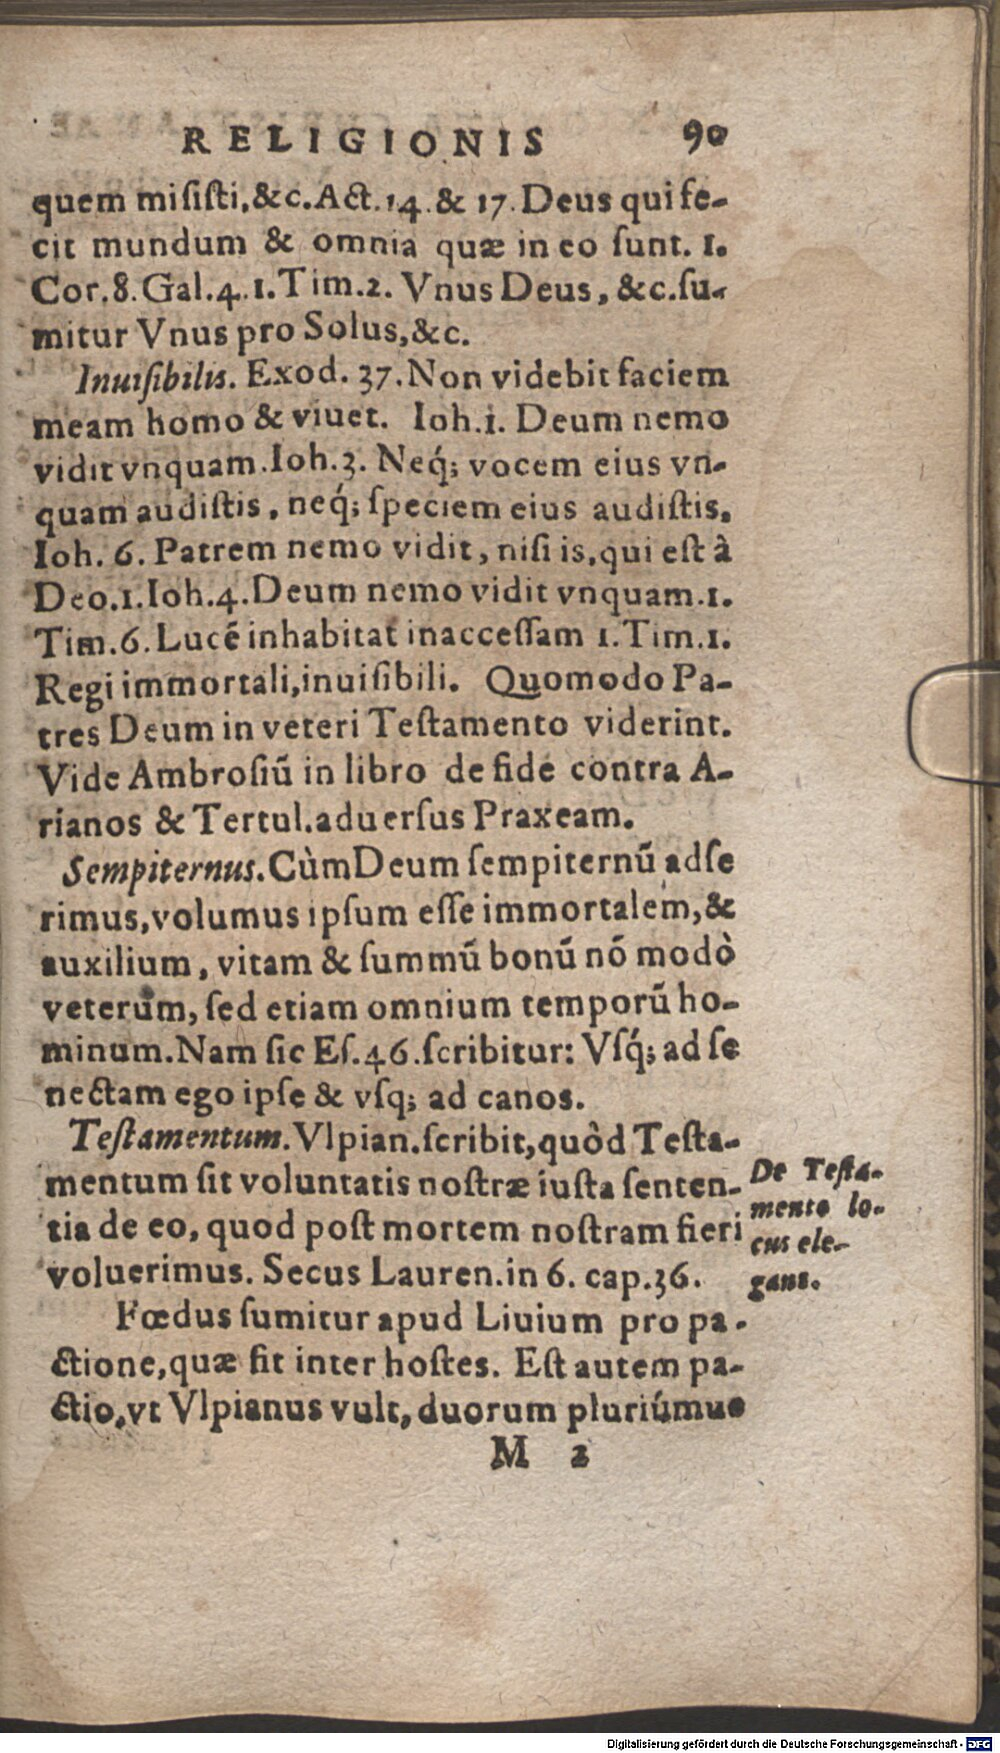 RELIGIONIS 90
quem misisti, &c. Act. 14. & 17. Deus qui fe-
cit mundum & omnia quæ in eo sunt. 1.
Cor. 8. Gal. 4. 1. Tim. 2. Vnus Deus, &c. su-
mitur Vnus pro Solus, &c.
Inuisibilis. Exod. 37. Non videbit faciem
meam homo & viuet. Ioh. 1. Deum nemo
vidit vnquam. Ioh. 3. Neq́; vocem eius vn-
quam audistis, neq́; speciem eius audistis.
Ioh. 6. Patrem nemo vidit, nisi is, qui est à
Deo. 1. Ioh. 4. Deum nemo vidit vnquam. 1.
Tim. 6. Lucē inhabitat inaccessam 1. Tim. 1.
Regi immortali, inuisibili. Quomodo Pa-
tres Deum in veteri Testamento viderint.
Vide Ambrosiū in libro de fide contra A-
rianos & Tertul. aduersus Praxeam.
Sempiternus. Cùm Deum sempiternū adse
rimus, volumus ipsum esse immortalem, &
auxilium, vitam & summū bonū nō modò
veterum, sed etiam omnium temporū ho-
minum. Nam sic Es. 46. scribitur: Vsq́; ad se
nectam ego ipse & vsq; ad canos.
Testamentum. Vlpian. scribit, quòd Testa-
mentum sit voluntatis nostræ iusta senten-
tia de eo, quod post mortem nostram fieri
voluerimus. Secus Lauren. in 6. cap. 36.
De Testa-
mento lo-
cus ele-
gans.
Fœdus sumitur apud Liuium pro pa-
ctione, quæ fit inter hostes. Est autem pa-
ctio, vt Vlpianus vult, duorum pluriúmue
M 2
Digitalisierung gefördert durch die Deutsche Forschungsgemeinschaft - DFG